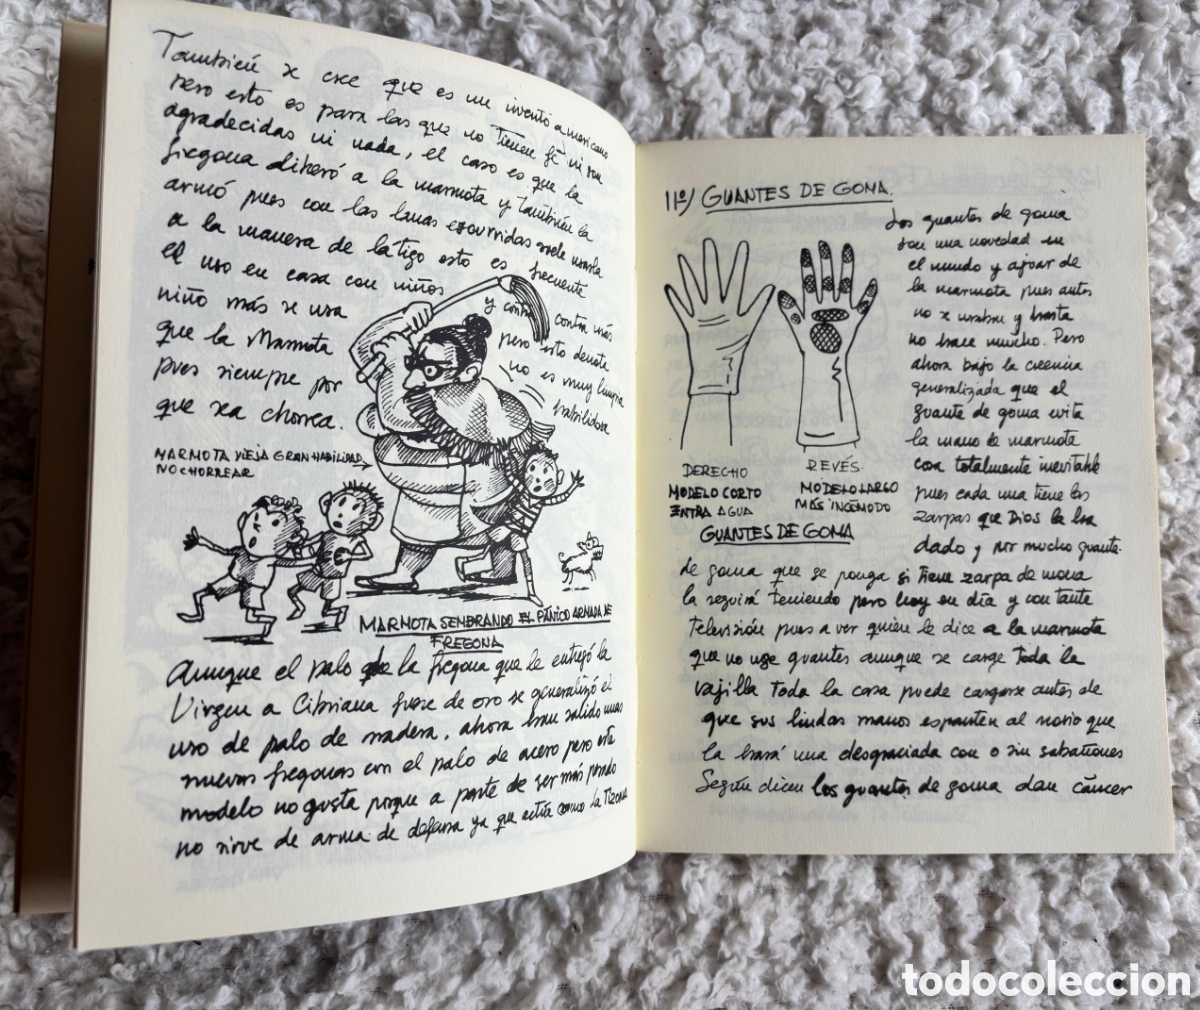 También se cree que es un invento americano
pero esto es para las que no tienen fé ni son
agradecidas ni nada, el caso es que la
fregona liberó a la marmota y también la
armó pues con las lanas escurridas suele usarla
a la manera de látigo esto es frecuente
el uso en casa con niños
y contra
contra más
niño más se usa
pero esto denota
que la Marmota
no es muy limpia
pues siempre por
habilidosa
que sea chorrea.
MARMOTA VIEJA GRAN HABILIDAD
NO CHORREAR
MARMOTA SEMBRANDO EL PÁNICO ARMADA DE
FREGONA
Aunque el palo de la fregona que le entregó la
Virgen a Cibriana fuese de oro se generalizó el
uso de palo de madera, ahora han salido unas
nuevas fregonas con el palo de acero pero este
modelo no gusta porque a parte de ser más pesado
no sirve de arma de defensa ya que estita como la Tizona
11º/ GUANTES DE GOMA.
Los guantes de goma
son una novedad en
el mundo y ajuar de
la marmota pues antes
no se usaban y hasta
no hace mucho. Pero
ahora bajo la creencia
generalizada que el
guante de goma evita
la mano de marmota
cosa totalmente inevitable
pues cada una tiene las
zarpas que Dios la ha
dado y por mucho guante
DERECHO
MODELO CORTO
ENTRA AGUA
REVÉS.
MODELO LARGO
MÁS INCÓMODO
GUANTES DE GOMA
de goma que se ponga si tiene zarpa de mona
la seguirá teniendo pero hoy en día y con tante
televisión pues a ver quien le dice a la marmota
que no use guantes aunque se cargue toda la
vajilla toda la casa puede cargarse antes de
que sus lindas manos espanten al novio que
la hará una desgraciada con o sin sabañones
Según dicen los guantes de goma dan cáncer
todocoleccion